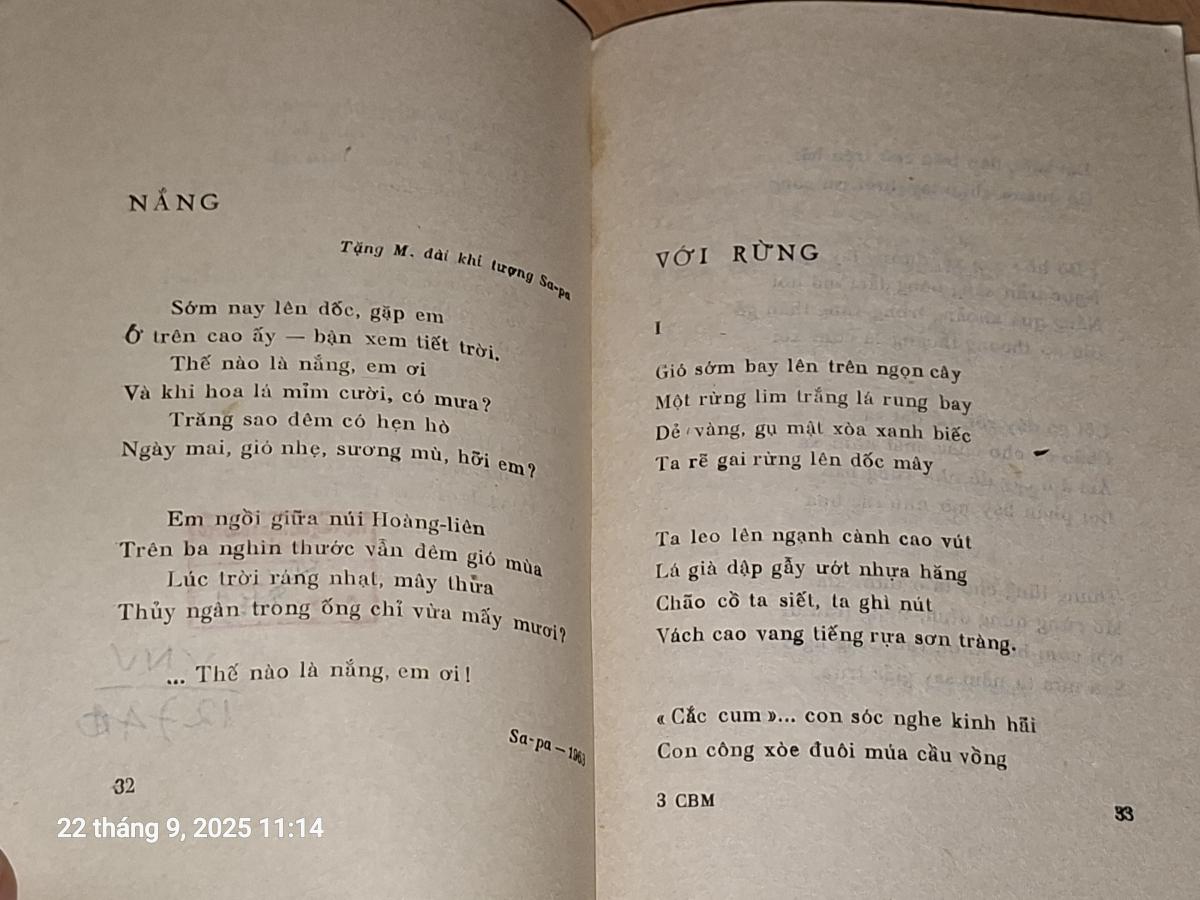 NẮNG
Tặng M. đài khí tượng Sa-pa
Sớm nay lên dốc, gặp em
Ở trên cao ấy — bận xem tiết trời.
Thế nào là nắng, em ơi
Và khi hoa lá mỉm cười, có mưa?
Trăng sao đêm có hẹn hò
Ngày mai, gió nhẹ, sương mù, hỡi em?
Em ngồi giữa núi Hoàng-liên
Trên ba nghìn thước vẫn đêm gió mùa
Lúc trời ráng nhạt, mây thưa
Thủy ngân trong ống chỉ vừa mấy mươi?
... Thế nào là nắng, em ơi!
Sa-pa — 1963
32
22 tháng 9, 2025 11:14
VỚI RỪNG
I
Gió sớm bay lên trên ngọn cây
Một rừng lim trắng lá rung bay
Dẻ vàng, gụ mật xòa xanh biếc
Ta rẽ gai rừng lên dốc mây
Ta leo lên ngạnh cành cao vút
Lá già dập gẫy ướt nhựa hăng
Chão cồ ta siết, ta ghì nút
Vách cao vang tiếng rựa sơn tràng.
« Cắc cum »... con sóc nghe kinh hãi
Con công xòe đuôi múa cầu vồng
3 CBM
33